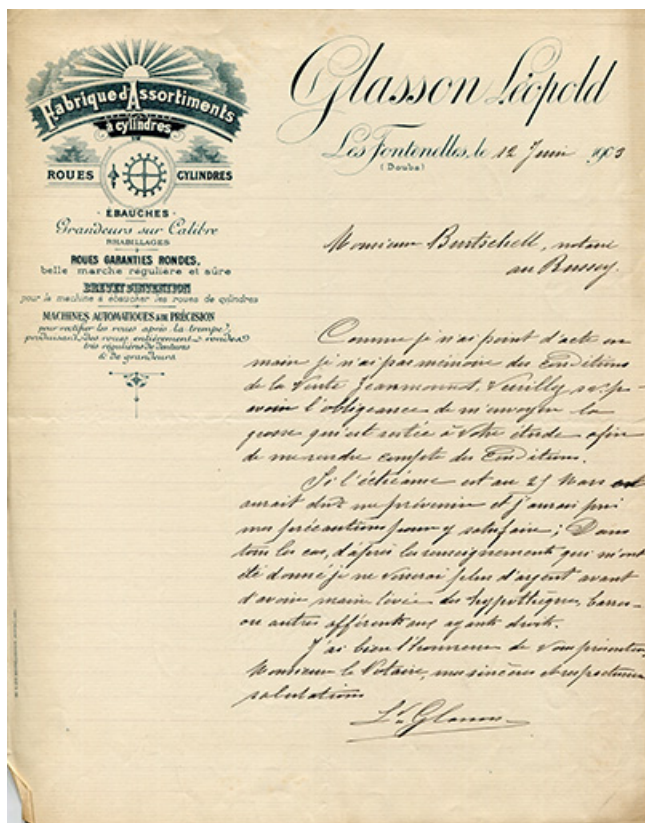 Fabrique d'Assortiments
à cylindres
ROUES CYLINDRES
ÉBAUCHES
Grandeurs sur Calibre
RHABILLAGES
ROUES GARANTIES RONDES,
belle marche régulière et sûre
BREVET D'INVENTION
pour la machine à ébaucher les roues de cylindres
MACHINES AUTOMATIQUES & DE PRÉCISION
pour rectifier les roues après la trempe,
produisant des roues entièrement rondes
très régulières de dentures
& de grandeurs
Glasson Léopold
Les Fontenelles, le 12 Juin 1903
(Doubs)
Monsieur Bertschell, notaire
au Russey.
Comme je n'ai point d'acte en
main je n'ai pas mémoire des Conditions
de la Vente Jeanmonnot. Veuillez
avoir l'obligeance de m'envoyer la
grosse qui est restée à votre étude afin
de me rendre compte des Conditions.
Si l'échéance est au 25 Mars on
aurait dû me prévenir et j'aurais pris
mes précautions pour y satisfaire ; Dans
tous les cas, d'après les renseignements qui m'ont
été donné je ne verserai plus d'argent avant
d'avoir main levée des hypothèques,
ou autres afférents aux ayants droits.
J'ai bien l'honneur de vous présenter,
Monsieur le Notaire, mes sincères et respectueuses
salutations
Ld Glasson